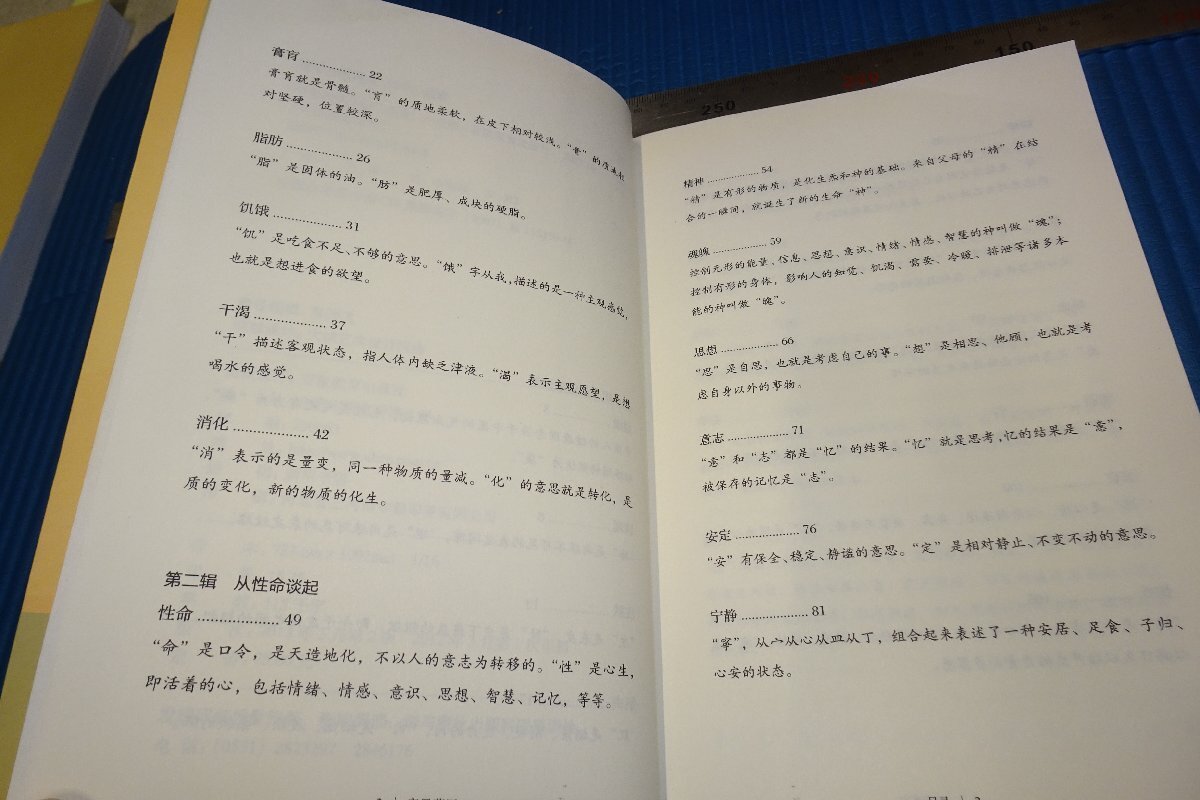 膏肓 .................. 22
膏肓就是骨髓。“肓”的质地柔软，在皮下相对较浅。“膏”的质地较
对坚硬，位置较深。
脂肪 .................. 26
“脂”是固体的油。“肪”是肥厚、成块的硬脂。
饥饿 .................. 31
“饥”是吃食不足、不够的意思。“饿”字从我，描述的是一种主观感觉，
也就是想进食的欲望。
干渴 .................. 37
“干”描述客观状态，指人体内缺乏津液。“渴”表示主观愿望，是想
喝水的感觉。
消化 .................. 42
“消”表示的是量变，同一种物质的量减。“化”的意思就是转化，是
质的变化，新的物质的化生。
第二辑 从性命谈起
性命 .................. 49
“命”是口令，是天造地化，不以人的意志为转移的。“性”是心生，
即活着的心，包括情绪、情感、意识、思想、智慧、记忆，等等。
250
150
精神 .................. 54
“精”是有形的物质，是化生炁和神的基础。来自父母的“精”在结
合的一瞬间，就诞生了新的生命“神”。
魂魄 .................. 59
控制无形的能量、信息、思想、意识、情绪、情感、智慧的神叫做“魂”；
控制有形的身体，影响人的知觉、饥渴、需要、冷暖、排泄等诸多本
能的神叫做“魄”。
思想 .................. 66
“思”是自思，也就是考虑自己的事。“想”是相思、他顾，也就是考
虑自身以外的事物。
意志 .................. 71
“意”和“志”都是“忆”的结果。“忆”就是思考，忆的结果是“意”，
被保存的记忆是“志”。
安定 .................. 76
“安”有保全、稳定、静谧的意思。“定”是相对静止、不变不动的意思。
宁静 .................. 81
“寧”，从宀从心从皿从丁，组合起来表述了一种安居、足食、子归、
心安的状态。